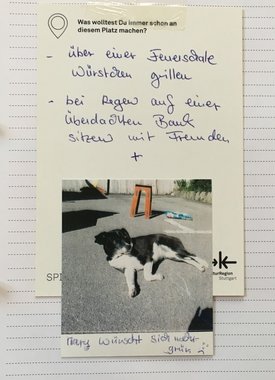 Was wolltest Du immer schon an
diesem Platz machen?
- über einer Feuerschale
Würstchen grillen
- bei Regen auf einer
überdachten Bank
sitzen mit Freunden
+
SPI
KulturRegion
Stuttgart
wünscht sich mehr
grün :